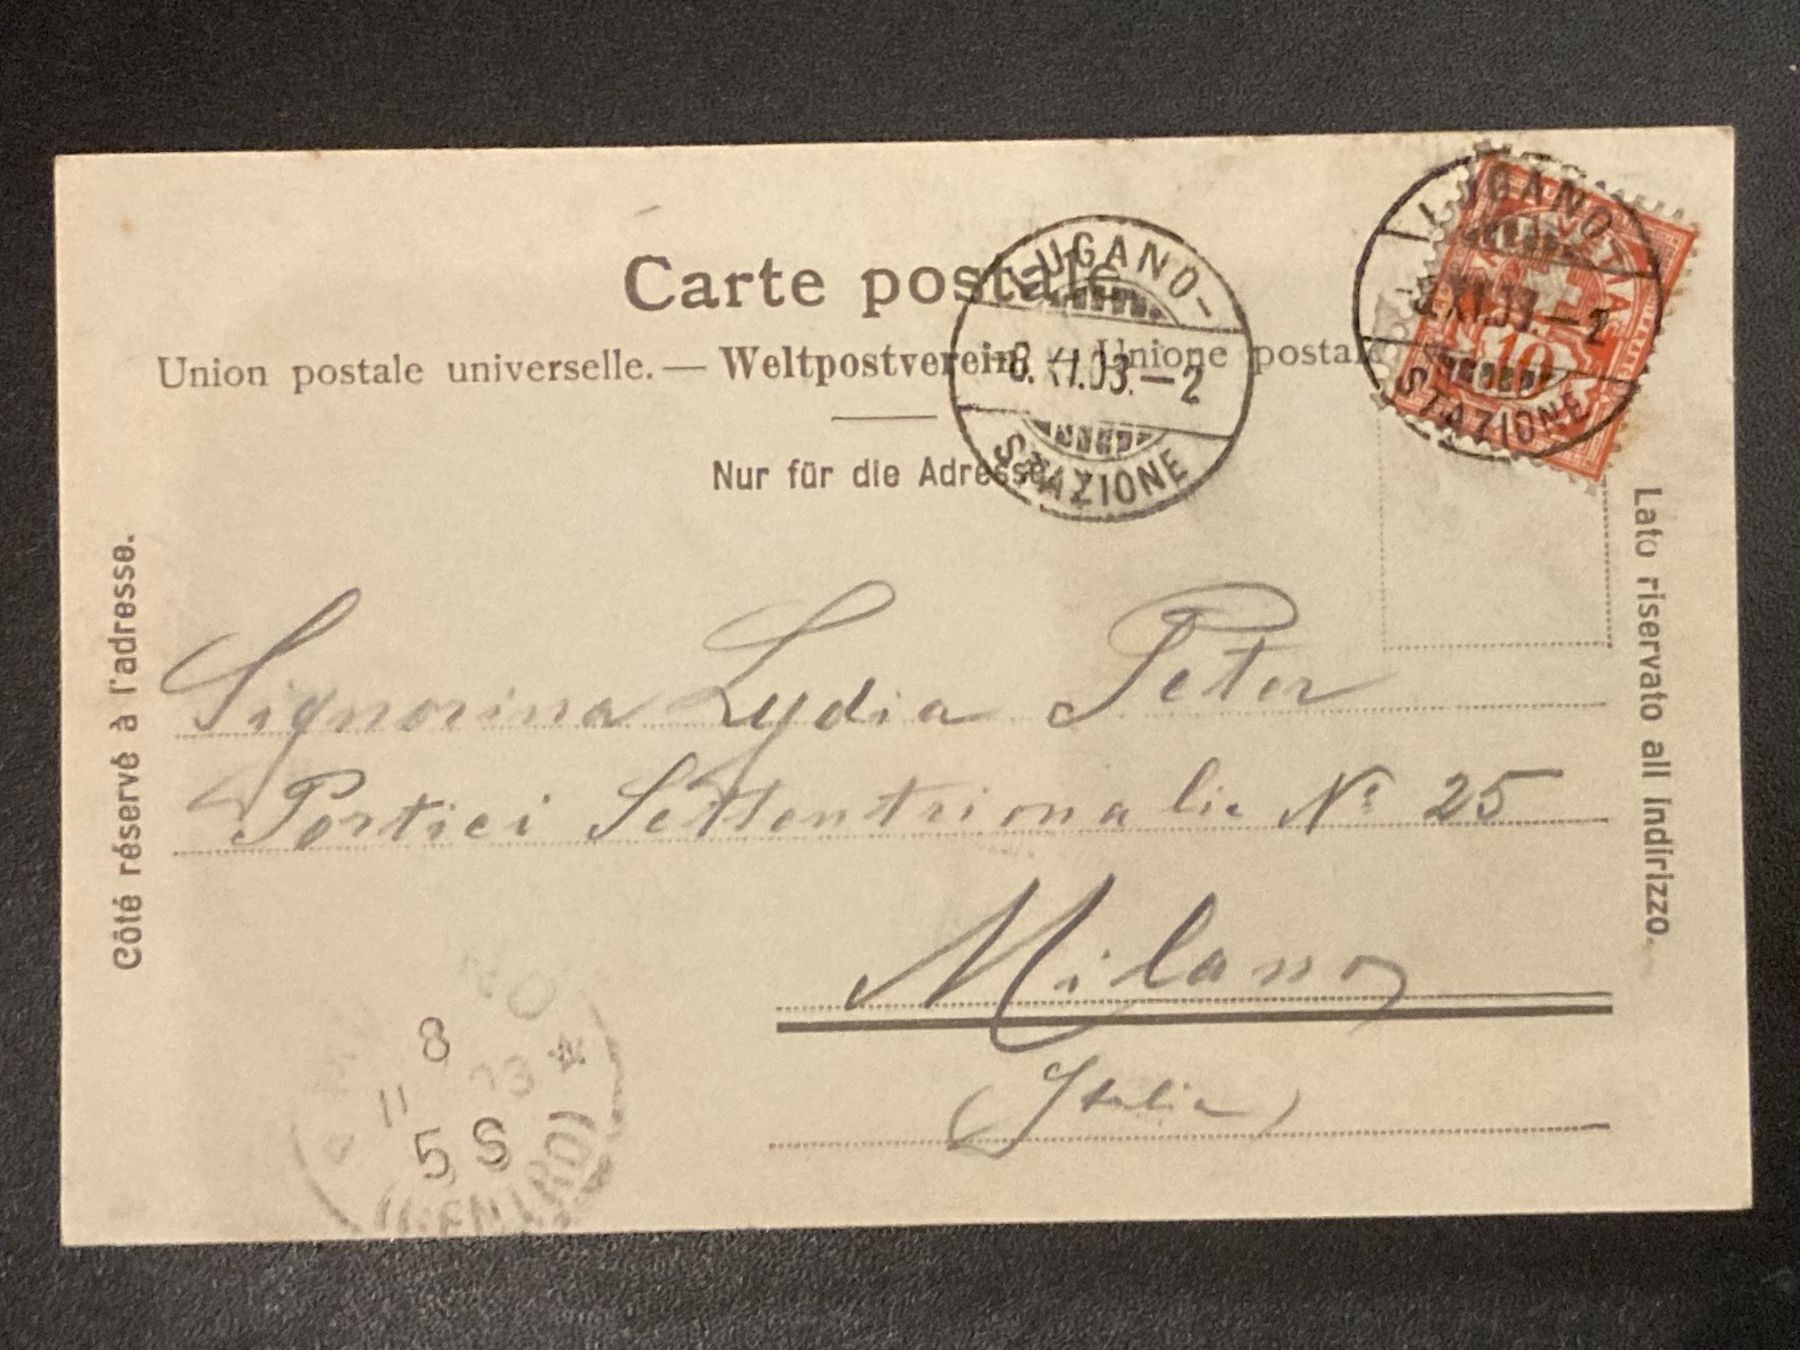 Carte postale
Union postale universelle. — Weltpostverein. — Unione postale
Nur für die Adresse
Côté réservé à l'adresse.
Lato riservato all indirizzo.
LUGANO-
8.XI.03.-2
STAZIONE
LUGANO-
XI.03.-2
STAZIONE
10
Signorina Lydia Peter
Portici Settentrionale No 25
Milano
(Italia)
8
11 03
5 S
(CENTRO)